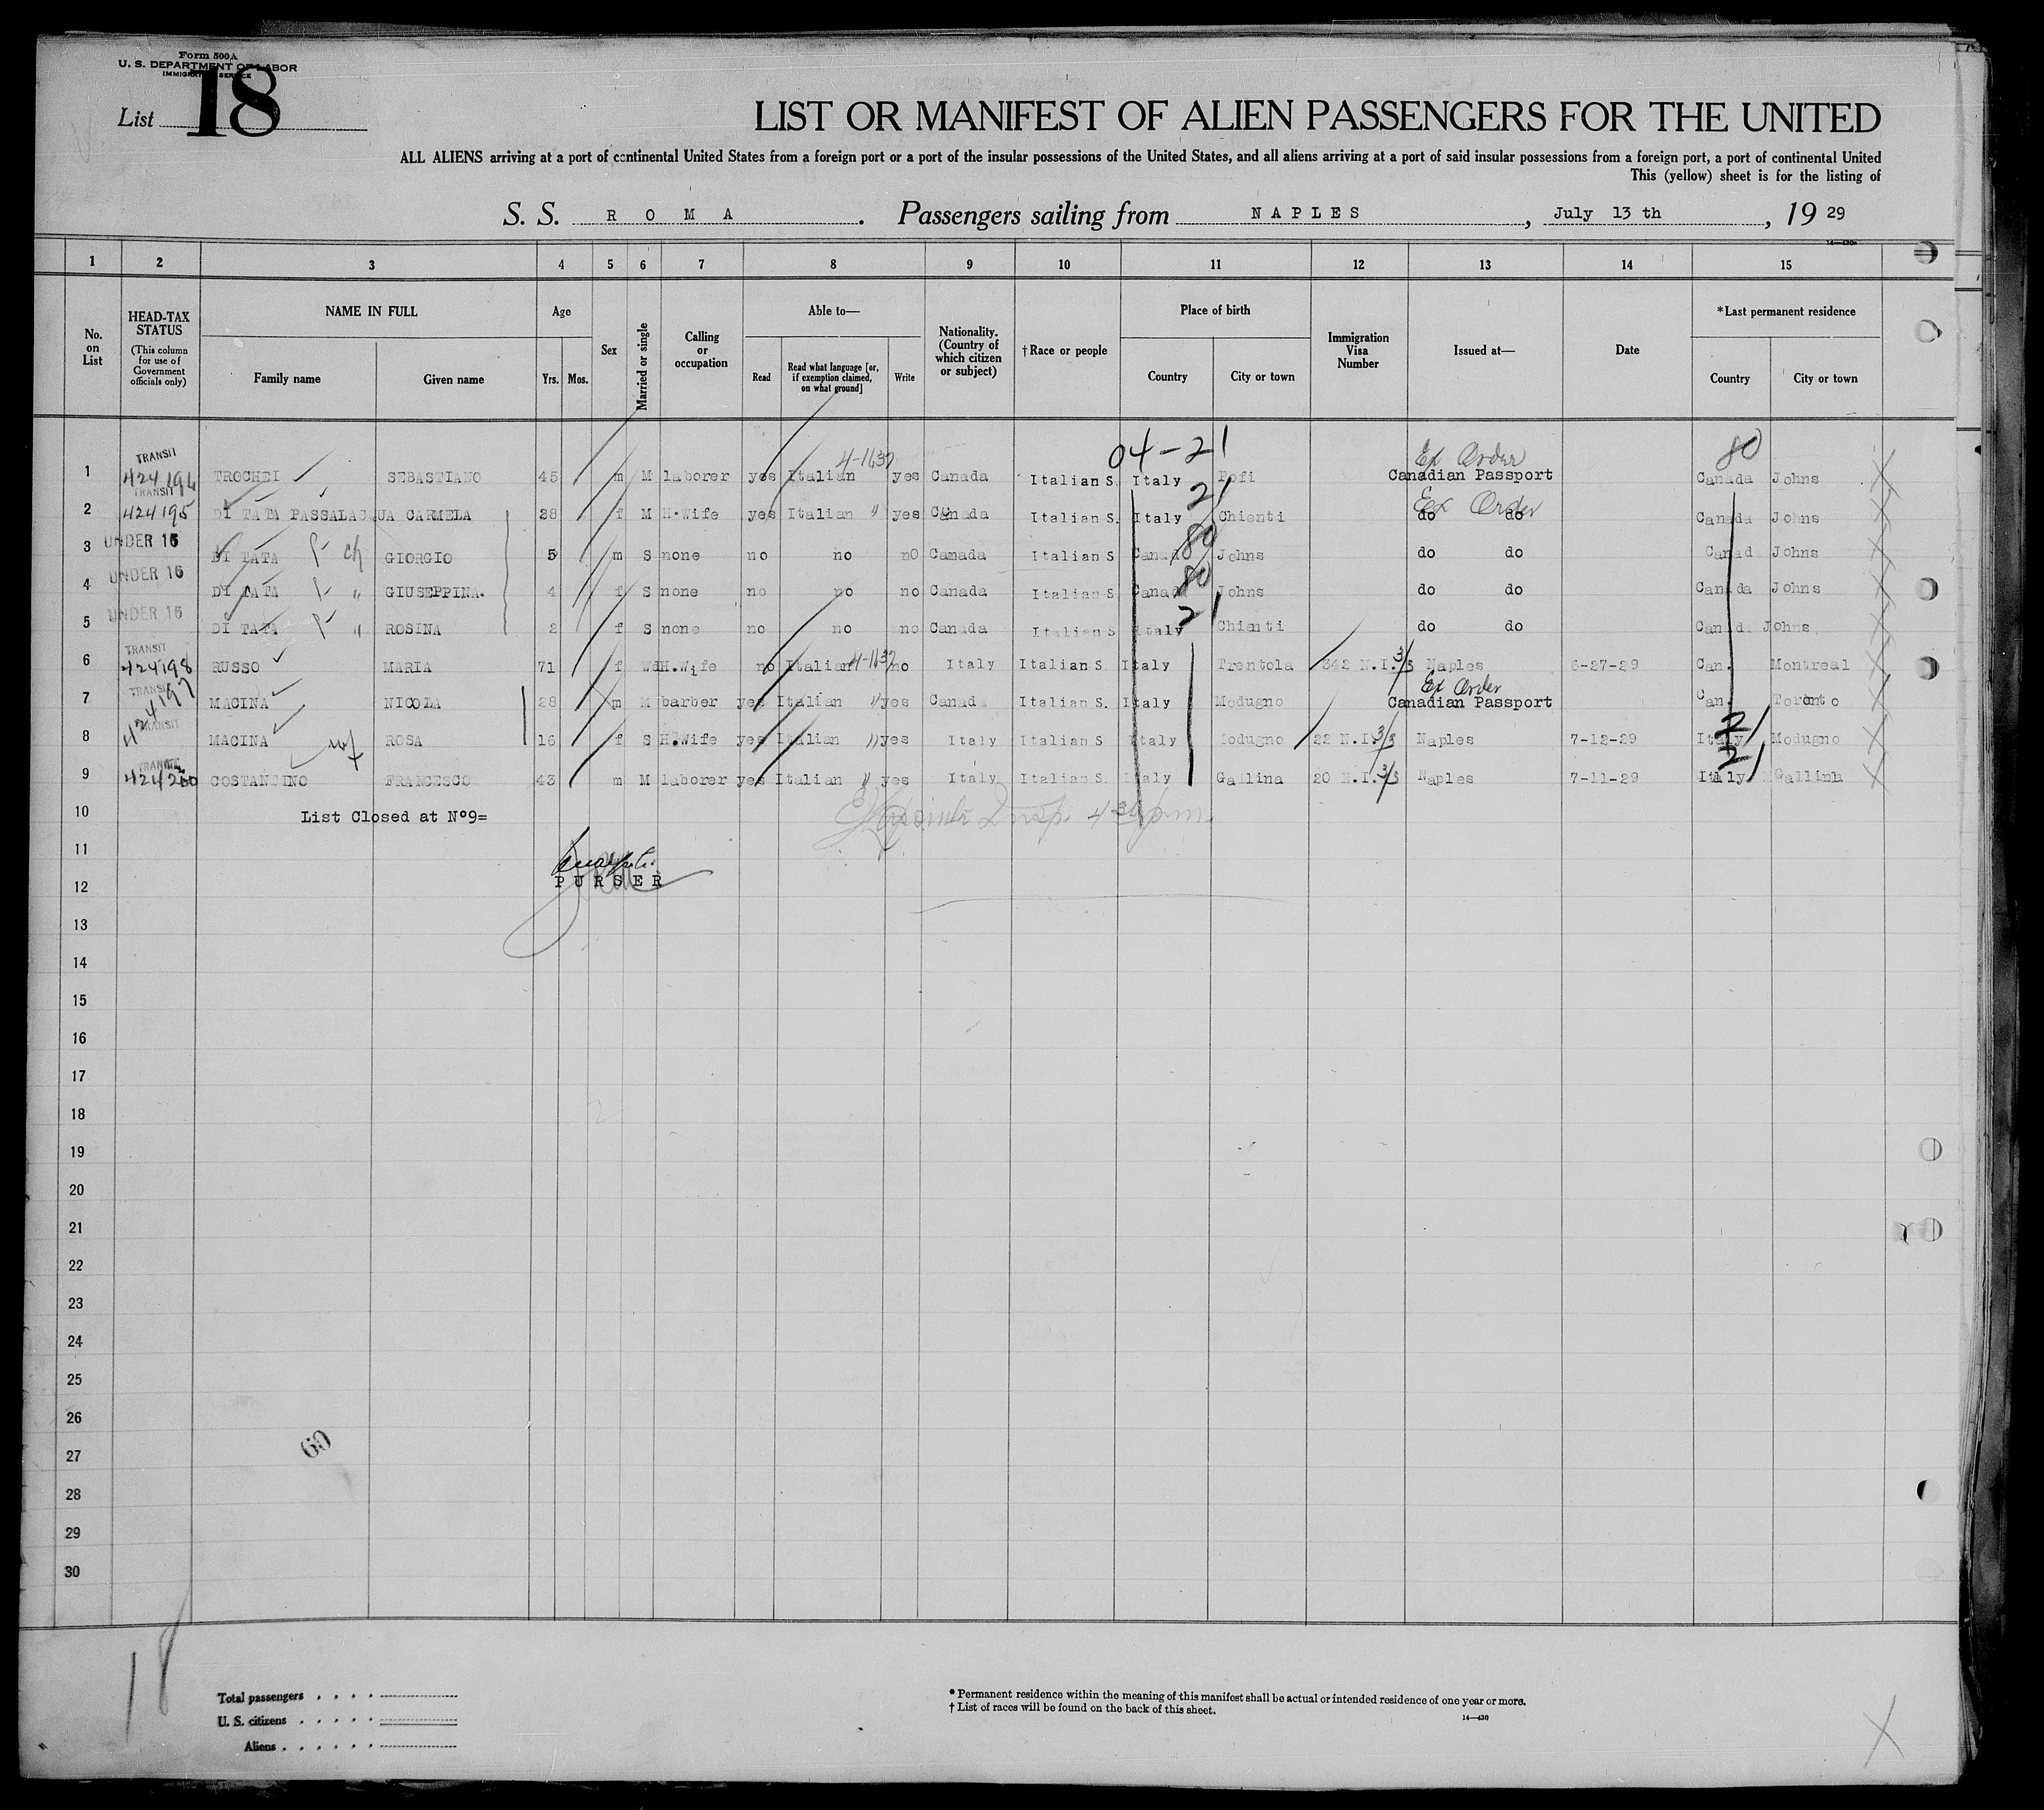 Form 500A
U. S. DEPARTMENT OF LABOR
IMMIGRATION SERVICE
List 18
LIST OR MANIFEST OF ALIEN PASSENGERS FOR THE UNITED
ALL ALIENS arriving at a port of continental United States from a foreign port or a port of the insular possessions of the United States, and all aliens arriving at a port of said insular possessions from a foreign port, a port of continental United
This (yellow) sheet is for the listing of
S. S. R O M A . Passengers sailing from N A P L E S , July 13 th , 19 29
14—430a
1 2 3 4 5 6 7 8 9 10 11 12 13 14 15
No. on List
HEAD-TAX STATUS (This column for use of Government officials only)
NAME IN FULL Family name Given name
Age Yrs. Mos.
Sex
Married or single
Calling or occupation
Able to— Read Read what language [or, if exemption claimed, on what ground] Write
Nationality. (Country of which citizen or subject)
†Race or people
Place of birth Country City or town
Immigration Visa Number
Issued at—
Date
*Last permanent residence Country City or town
04-21 Ex Order 80
1 TRANSIT 424194 TROCHEI SEBASTIANO 45 m M laborer yes Italian 4-1637 yes Canada Italian S. Italy Pofi Canadian Passport Canada Johns
21 Ex Order
2 TRANSIT 424195 DI TATA PASSALACQUA CARMELA 28 f M H.Wife yes Italian " yes Canada Italian S. Italy Chienti do do Canada Johns
3 UNDER 16 DI TATA ch GIORGIO 5 m S none no no no Canada Italian S Canad 80 Johns do do Canad Johns
4 UNDER 16 DI TATA " GIUSEPPINA. 4 f S none no no no Canada Italian S Canad 80 Johns do do Canada Johns
5 UNDER 16 DI TATA " ROSINA 2 f S none no no no Canada Italian S Italy 21 Chienti do do Canad Johns
6 TRANSIT 424198 RUSSO MARIA 71 f Wd H.Wife no Italian 4-1637 no Italy Italian S. Italy Trentola 342 N.I. 3/3 Naples 6-27-29 Can. Montreal
Ex Order
7 TRANSIT 424197 MACINA NICOLA 28 m M barber yes Italian " yes Canad Italian S. Italy Modugno Canadian Passport Can. Toronto
8 TRANSIT MACINA ROSA 16 f S H.Wife yes Italian " yes Italy Italian S Italy Modugno 22 N.I. 3/3 Naples 7-12-29 Italy 21 Modugno
9 TRANSIT 424200 COSTANTINO FRANCESCO 43 m M laborer yes Italian " yes Italy Italian S. Italy Gallina 20 N.I. 3/3 Naples 7-11-29 Italy 21 Gallina
10 List Closed at Nº9=
11
12 PURSER
13
14
15
16
17
18
19
20
21
22
23
24
25
26
27 60
28
29
30
18
Total passengers . . . .
U. S. citizens . . . . .
Aliens . . . . . .
* Permanent residence within the meaning of this manifest shall be actual or intended residence of one year or more.
† List of races will be found on the back of this sheet.
14—430